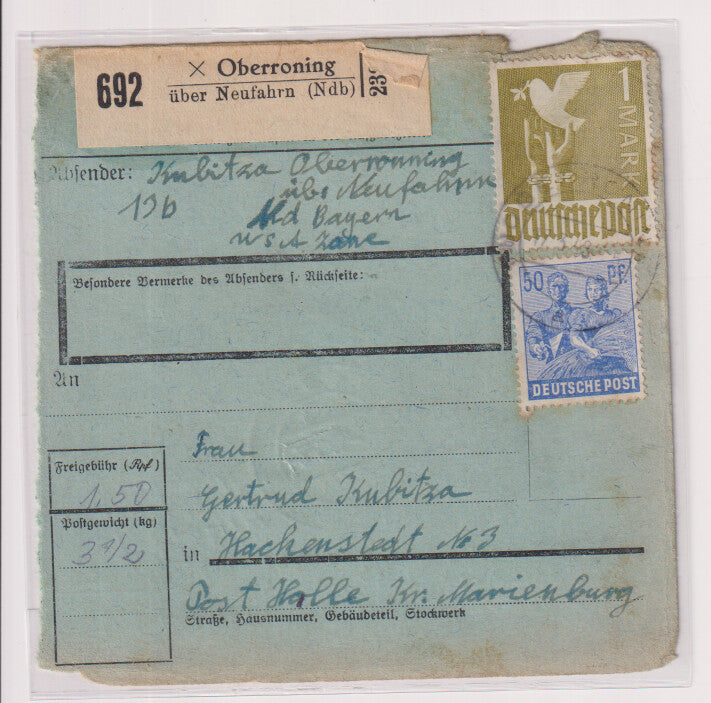 692
× Oberroning
über Neufahrn (Ndb)
239
1 MARK
deutschepost
Absender: Kubitza Oberronning
übr Neufahrn
13b Nd Bayern
50 Pf.
DEUTSCHE POST
Besondere Vermerke des Absenders s. Rückseite:
An
Frau
Gertrud Kubitza
in Hackenstedt Nr 3
Post Holle Kr. Marienburg
Straße, Hausnummer, Gebäudeteil, Stockwerk
Freigebühr (Rpf)
1,50
Postgewicht (kg)
3 1/2